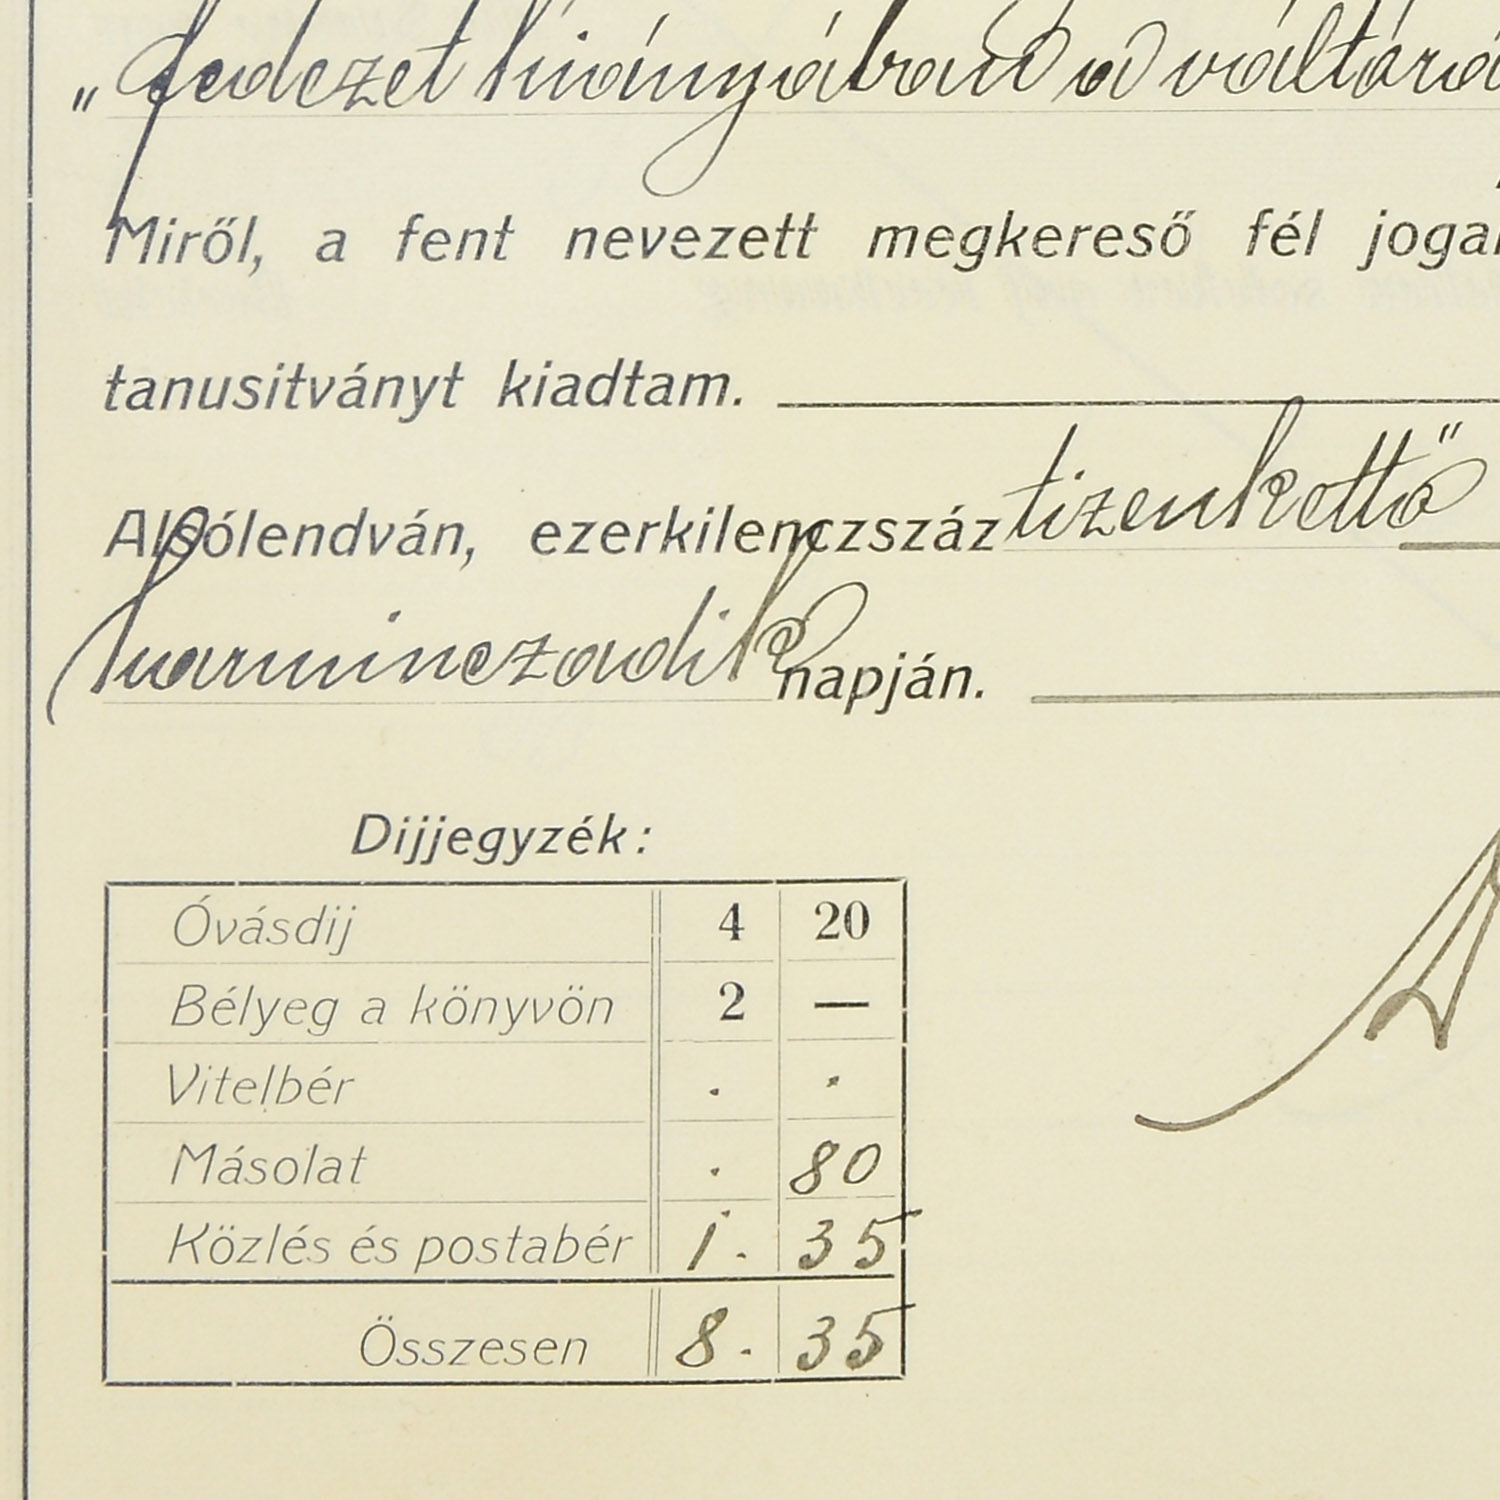 „fedezet hiányában a váltóra
Miről, a fent nevezett megkereső fél
tanusitványt kiadtam.
Alsólendván, ezerkilenczszáztizenkettő
harminczadik napján.
Dijjegyzék:
Óvásdij 4 20
Bélyeg a könyvön 2 —
Vitelbér . .
Másolat . 80
Közlés és postabér 1. 35
Összesen 8. 35